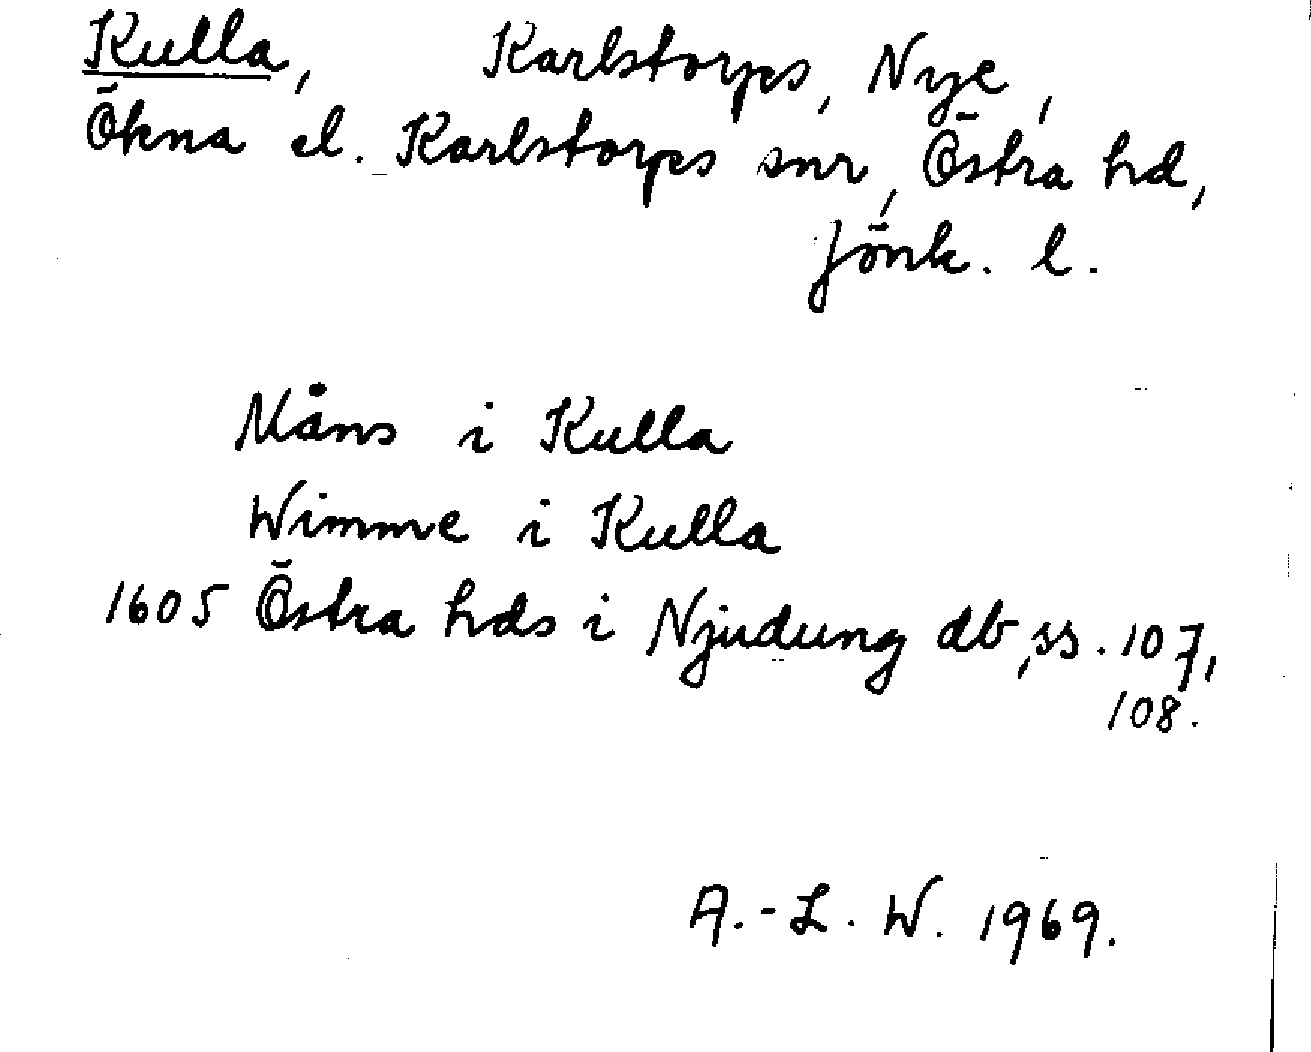 Kulla, Karlstorps, Nye,
Ökna el. Karlstorps snr, Östra hd,
Jönk. l.
Måns i Kulla
Wimme i Kulla
1605 Östra hds i Njudung db, ss. 107,
108.
A.-L. W. 1969.